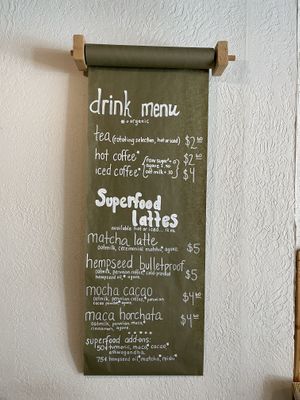 drink menu
* = organic
tea (rotating selection, hot or iced) $2.50
hot coffee* $2.50
iced coffee* $4
raw sugar* = 0
agave* = .50
oat milk = .50
Superfood
lattes
available hot or iced... 12 oz
matcha latte $5
oatmilk, ceremonial matcha*, agave*
hempseed bulletproof $5
oatmilk, peruvian coffee*, cold-pressed
hempseed oil*, agave*
mocha cacao $4.50
oatmilk, peruvian coffee*, peruvian
cacao powder*, agave*
maca horchata $4.50
oatmilk, peruvian maca*,
cinnamon, agave*
superfood add-ons:
50¢ turmeric, maca*, cacao*,
ashwagandha*
75¢ hempseed oil*, matcha*, reishi*